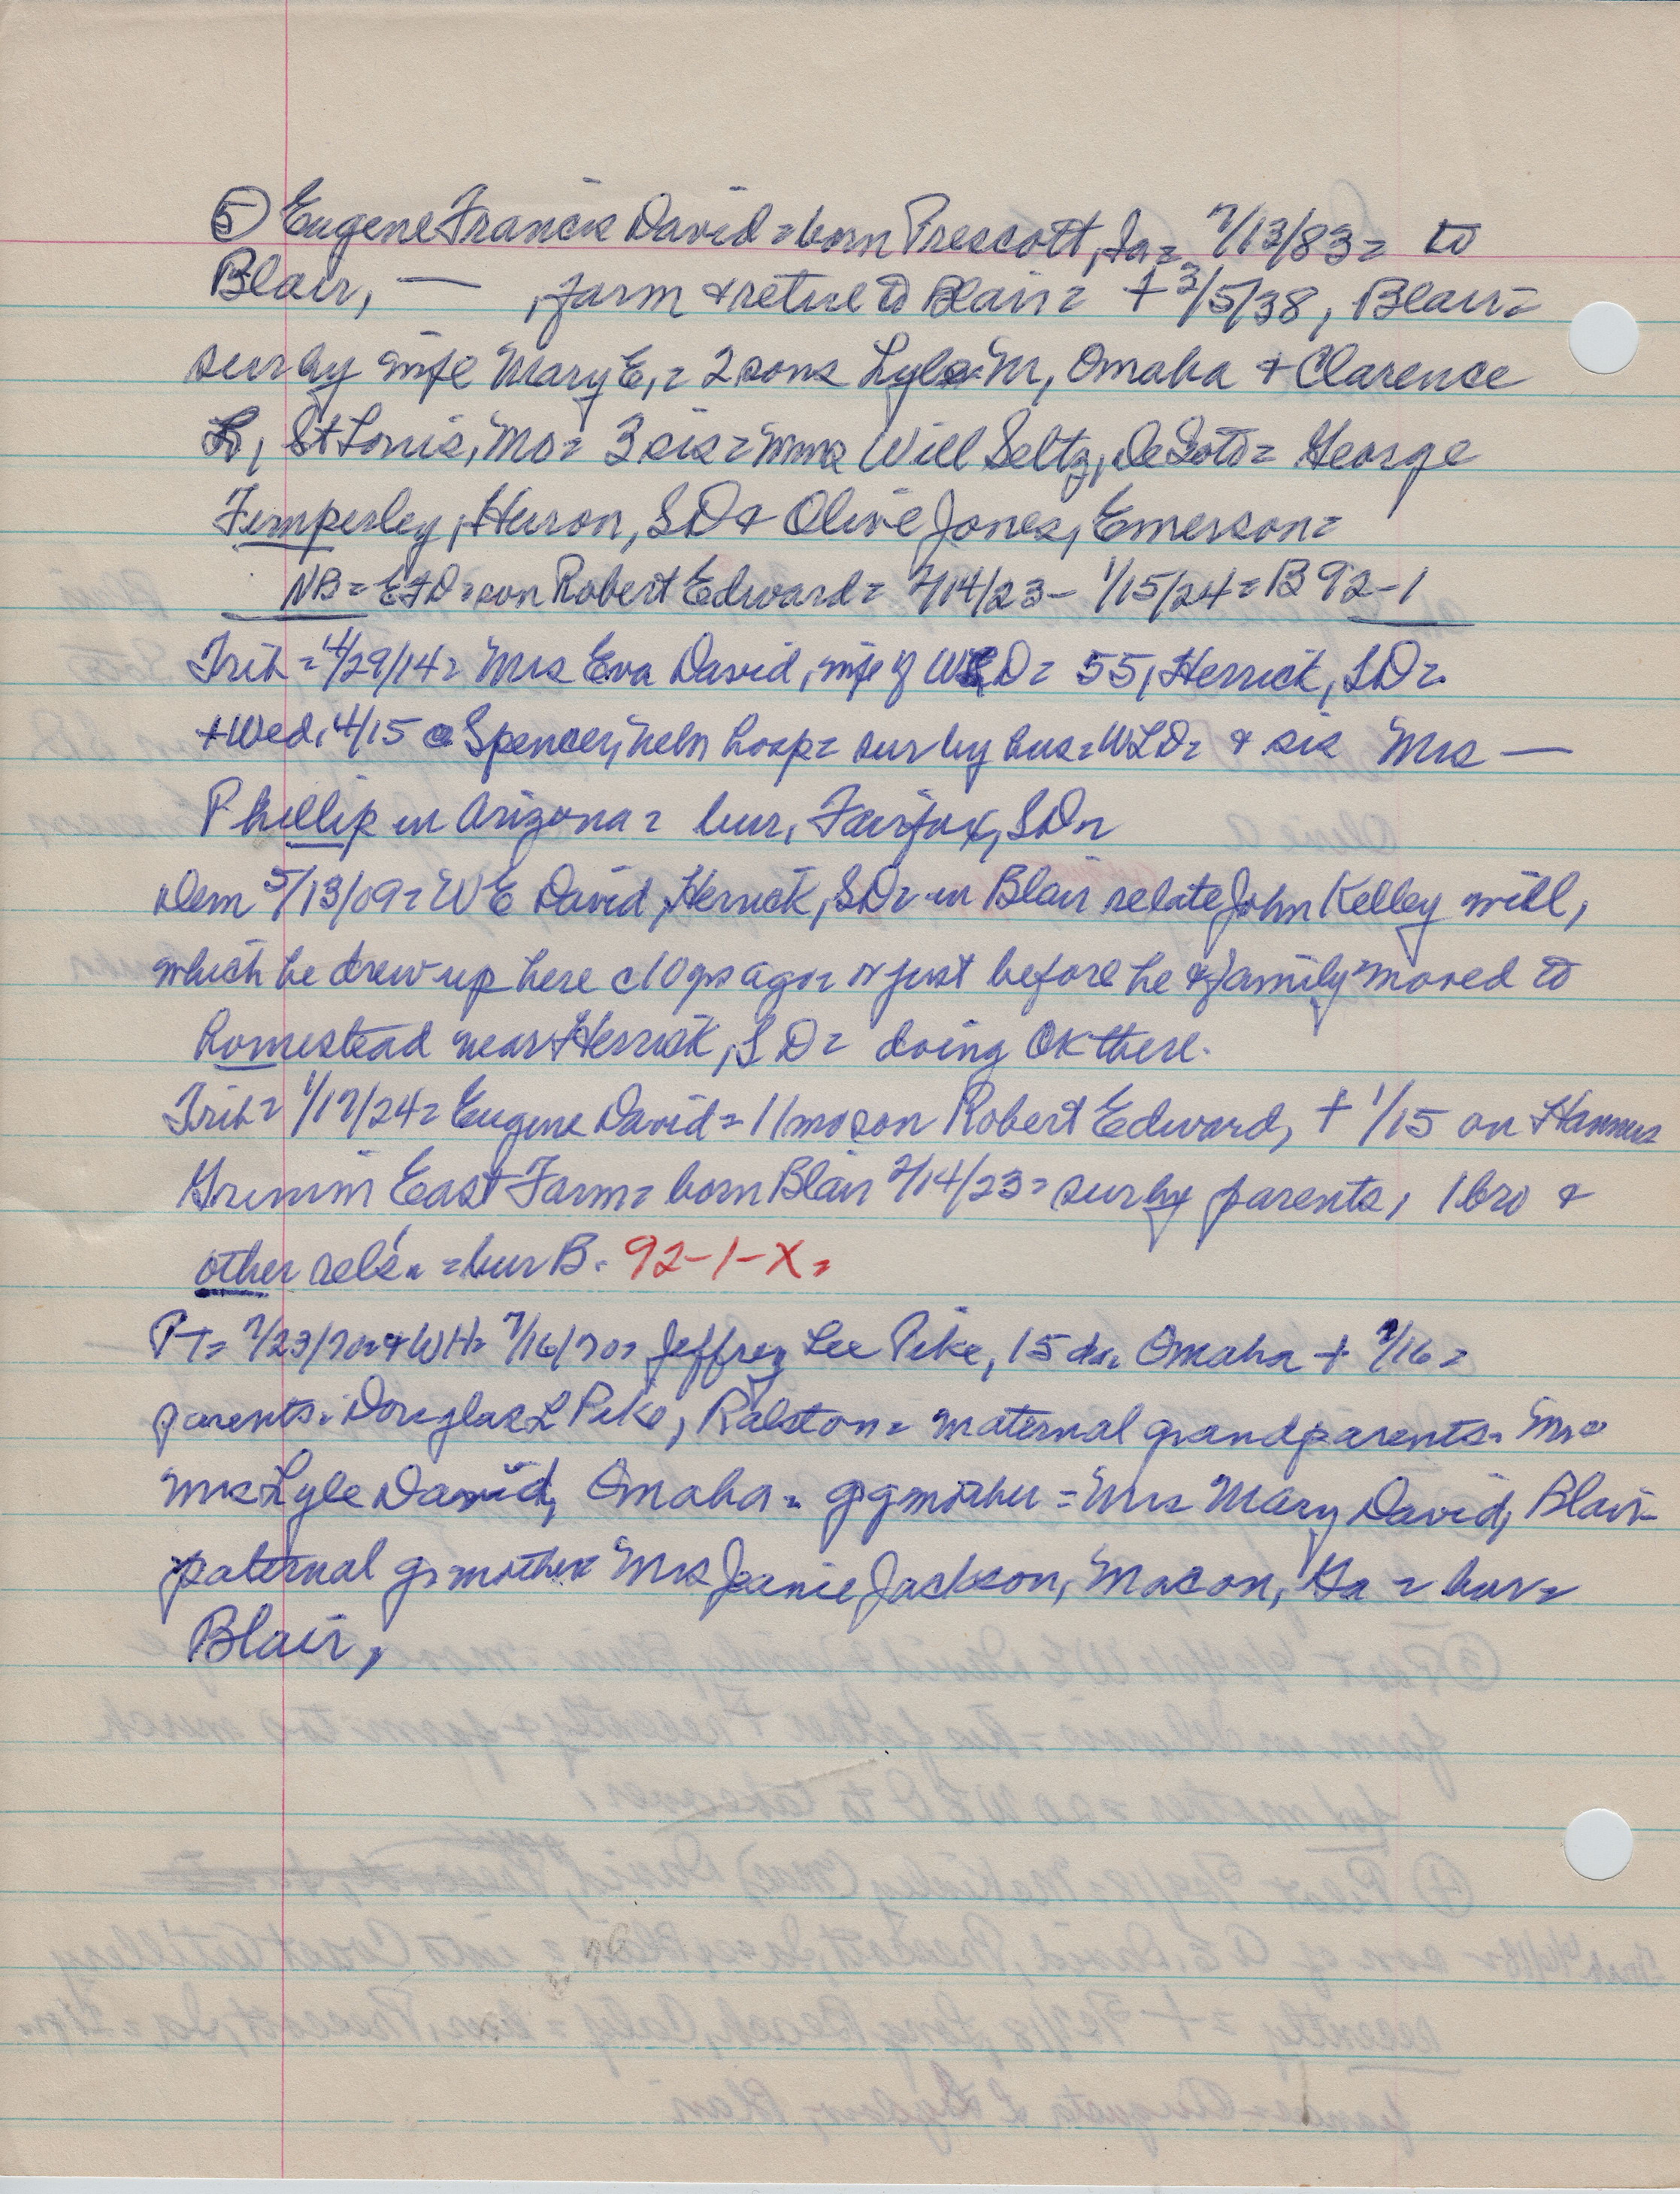 ⑤ Eugene Francis David = born Prescott, Ia = 7/13/83 = to
Blair, — , farm & retire to Blair = + 3/5/38, Blair =
sur by wife Mary E, = 2 sons Lyle M, Omaha & Clarence
L, St Louis, Mo = 3 sis = Mmes Will Seltz, DeSoto = George
Timperley, Huron, SD & Olive Jones, Emerson =
NB = EFD = son Robert Edward = 2/14/23 - 1/15/24 = B 92-1
Trib = 4/29/14 = Mrs Eva David, wife of WED = 55, Herrick, SD =
+ Wed, 4/15 @ Spencer, Nebr hosp = sur by hus = WED = & sis Mrs —
Phillip in Arizona = bur, Fairfax, SD =
Dem 5/13/09 = WE David, Herrick, SD = in Blair relate John Kelley will,
which he drew up here c10 yrs ago = just before he & family moved to
homestead near Herrick, SD = doing OK there.
Trib = 1/17/24 = Eugene David = 11 mo son Robert Edward, + 1/15 on
Grimm East Farm = born Blair 2/14/23 = sur by parents, 1 bro &
other rels = bur B. 92-1-X =
PT = 7/23/70 = & WH = 7/16/70 = Jeffrey Lee Pike, 15 da = Omaha + 7/16 =
parents = Douglas L Pike, Ralston = maternal grandparents = Mr &
Mrs Lyle David, Omaha = ggmother = Mrs Mary David, Blair =
paternal gmother Mrs Jeanie Jackson, Macon, Ga = bur =
Blair,